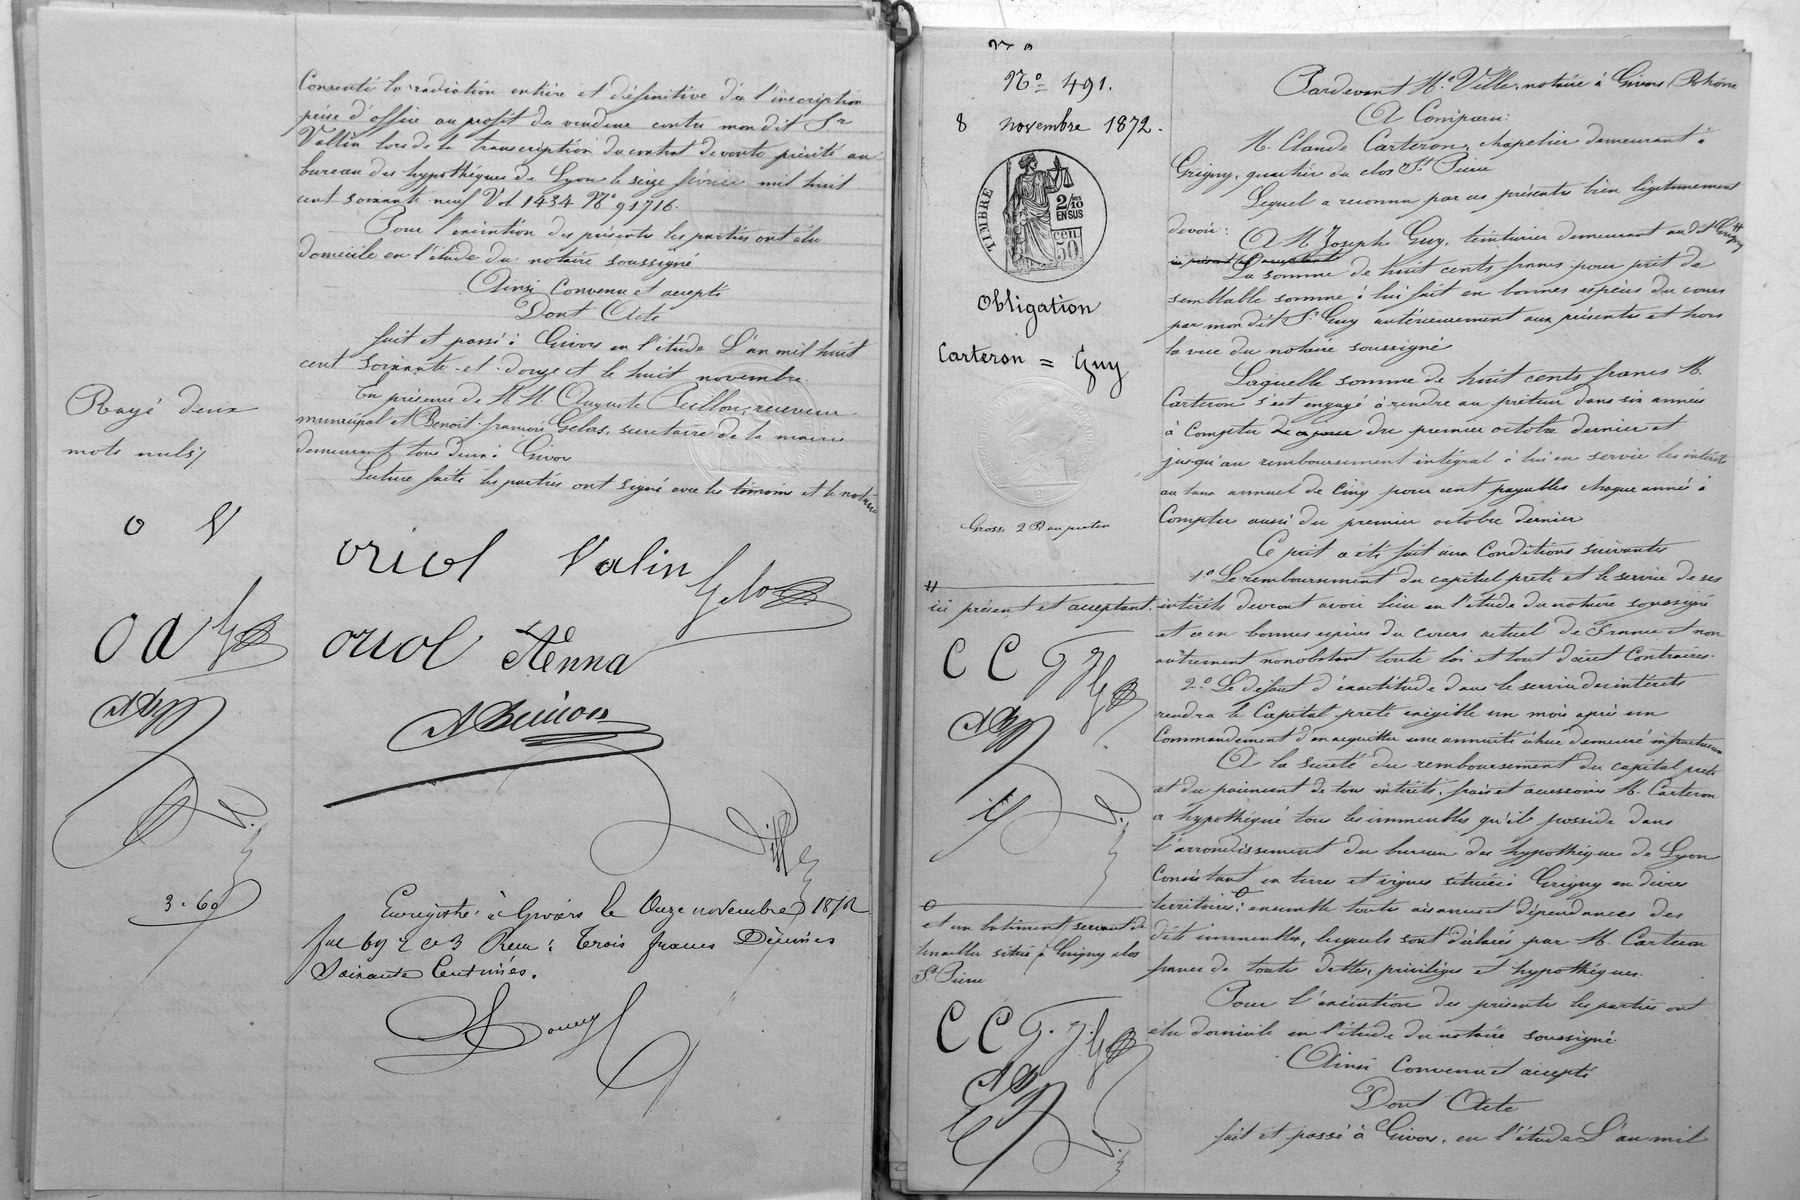 Consenti la radiation entière et définitive de l'inscription
prise d'office au profit du vendeur contre mondit Sr
Vallin lors de la transcription du contrat de vente précité au
bureau des hypothèques de Lyon le seize février mil huit
cent soixante neuf Vol 1434 No 91716.
Pour l'exécution des présentes les parties ont élu
domicile en l'étude du notaire soussigné
Ainsi convenu et accepté
Dont Acte
fait et passé à Givors en l'étude L'an mil huit
cent soixante-et-douze et le huit novembre
En présence de M.M. Auguste Peillon, receveur
municipal et Benoit-françois Gelas, secrétaire de la mairie
demeurant tous deux à Givors
Lecture faite les parties ont signé avec les témoins et le notaire
Rayé deux
mots nuls
O V
oriol Valin Gelas
O A
oriol Etienna
3.60
Enregistré à Givors le Onze novembre 1872
fol 69 r c 3 Reçu : Trois francs Décimes
Soixante Centimes.
No 491.
8 novembre 1872.
TIMBRE
2/10
EN SUS
CEN
50
Obligation
Carteron = Guy
Grosse
ici présent et acceptant.
C C G J
et un bâtiment servant de
situé à Grigny clos
St Pierre
C C G. J.
Pardevant Me Ville, notaire à Givors Rhône
A Comparu:
M. Claude Carteron, chapelier demeurant à
Grigny, quartier du clos St Pierre
Lequel a reconnu par ces présentes bien légitimement
devoir :
A M Joseph Guy, teinturier demeurant audit Grigny
ici présent et acceptant
La somme de huit cents francs pour prêt de
semblable somme à lui fait en bonnes espèces du cours
par mondit Sr Guy antérieurement aux présentes et hors
la vue du notaire soussigné
Laquelle somme de huit cents francs M.
Carteron s'est engagé à rendre au prêteur dans six années
à compter de ce jour du premier octobre dernier et
jusqu'au remboursement intégral à lui en servir les intérêts
au taux annuel de cinq pour cent payables chaque année à
compter aussi du premier octobre dernier
Ce prêt a été fait aux conditions suivantes
1o Le remboursement du capital prêté et le service de ses
intérêts devront avoir lieu en l'étude du notaire soussigné
et en bonnes espèces du cours actuel de France et non
autrement nonobstant toute loi et tout décret contraires.
2o Le défaut d'exactitude dans le service des intérêts
rendra le Capital prêté exigible un mois après un
Commandement d'en acquitter une annuité échue demeuré infructueux
A la sureté du remboursement du capital prêté
et du paiement de tous intérêts, frais et accessoires M. Carteron
a hypothéqué tous les immeubles qu'il possède dans
l'arrondissement du bureau des hypothèques de Lyon
Consistant en terre et vignes situées à Grigny en divers
territoires, ensemble toutes aisances et dépendances des
dits immeubles, lesquels sont déclarés par M. Carteron
francs de toutes dettes, privilèges et hypothèques.
Pour l'exécution des présentes les parties ont
élu domicile en l'étude du notaire soussigné.
Ainsi convenu et accepté
Dont Acte
fait et passé à Givors, en l'étude L'an mil